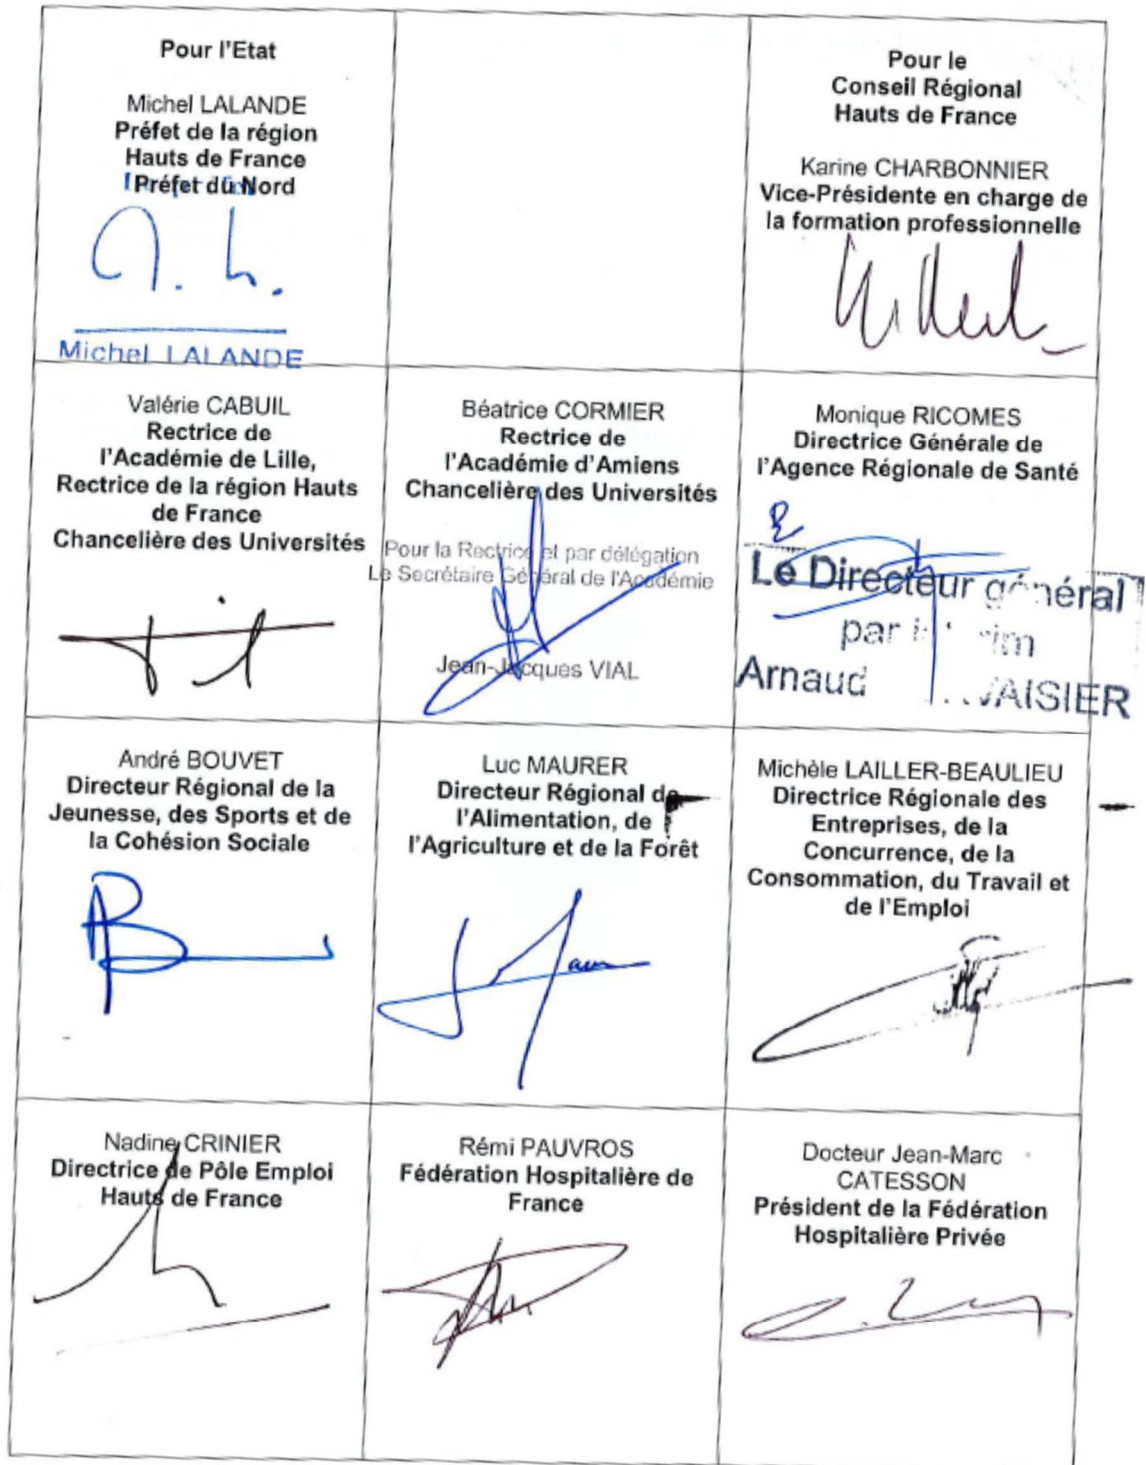 Pour l'Etat
Michel LALANDE
Préfet de la région
Hauts de France
Préfet du Nord
Michel LALANDE
Pour le
Conseil Régional
Hauts de France
Karine CHARBONNIER
Vice-Présidente en charge de
la formation professionnelle
Valérie CABUIL
Rectrice de
l'Académie de Lille,
Rectrice de la région Hauts
de France
Chancelière des Universités
Béatrice CORMIER
Rectrice de
l'Académie d'Amiens
Chancelière des Universités
Pour la Rectrice et par délégation
Le Secrétaire Général de l'Académie
Jean-Jacques VIAL
Monique RICOMES
Directrice Générale de
l'Agence Régionale de Santé
Le Directeur général
par
Arnaud
André BOUVET
Directeur Régional de la
Jeunesse, des Sports et de
la Cohésion Sociale
Luc MAURER
Directeur Régional de
l'Alimentation, de
l'Agriculture et de la Forêt
Michèle LAILLER-BEAULIEU
Directrice Régionale des
Entreprises, de la
Concurrence, de la
Consommation, du Travail et
de l'Emploi
Nadine CRINIER
Directrice de Pôle Emploi
Hauts de France
Rémi PAUVROS
Fédération Hospitalière de
France
Docteur Jean-Marc
CATESSON
Président de la Fédération
Hospitalière Privée